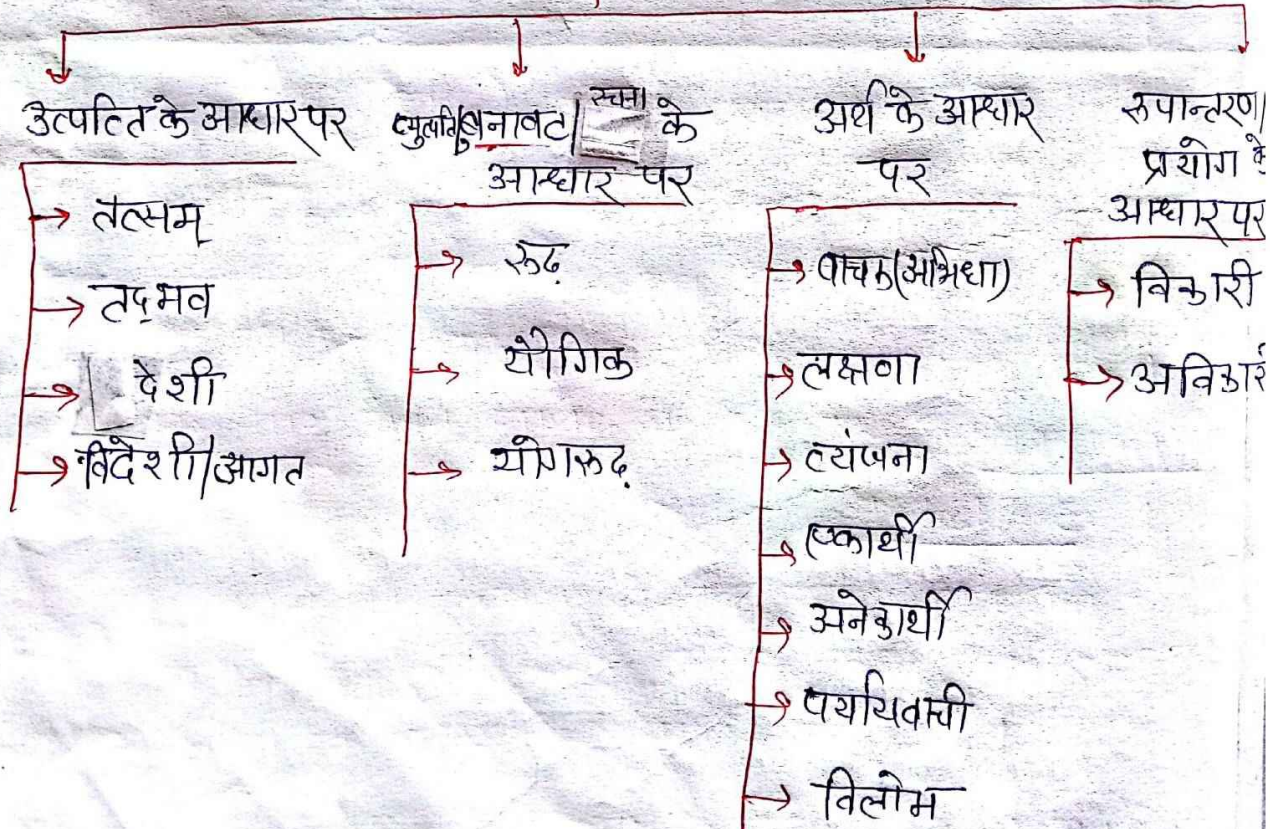 उत्पत्ति के आधार पर
तत्सम्
तद्भव
देशी
विदेशी/आगत
व्युत्पत्ति/बनावट/रचना के
आधार पर
रूढ़
यौगिक
योगरूढ़
अर्थ के आधार
पर
वाचक(अभिधा)
लक्षणा
व्यंजना
एकार्थी
अनेकार्थी
पर्यायवाची
विलोम
रूपान्तरण/
प्रयोग के
आधार पर
विकारी
अविकारी